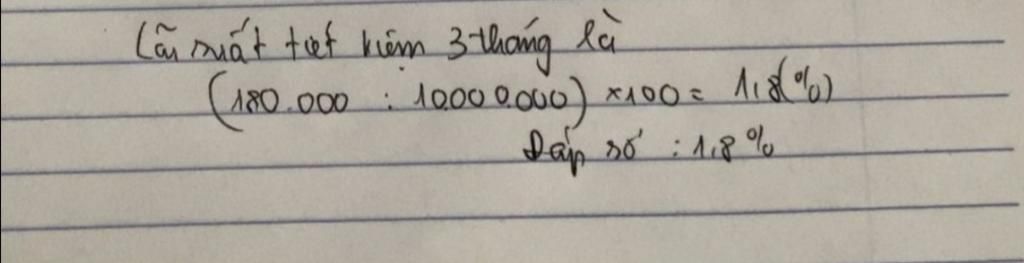 Lãi suất tiết kiệm 3 tháng là
(180.000 : 10.000.000) ×100 = 1,8(%)
Đáp số : 1,8 %